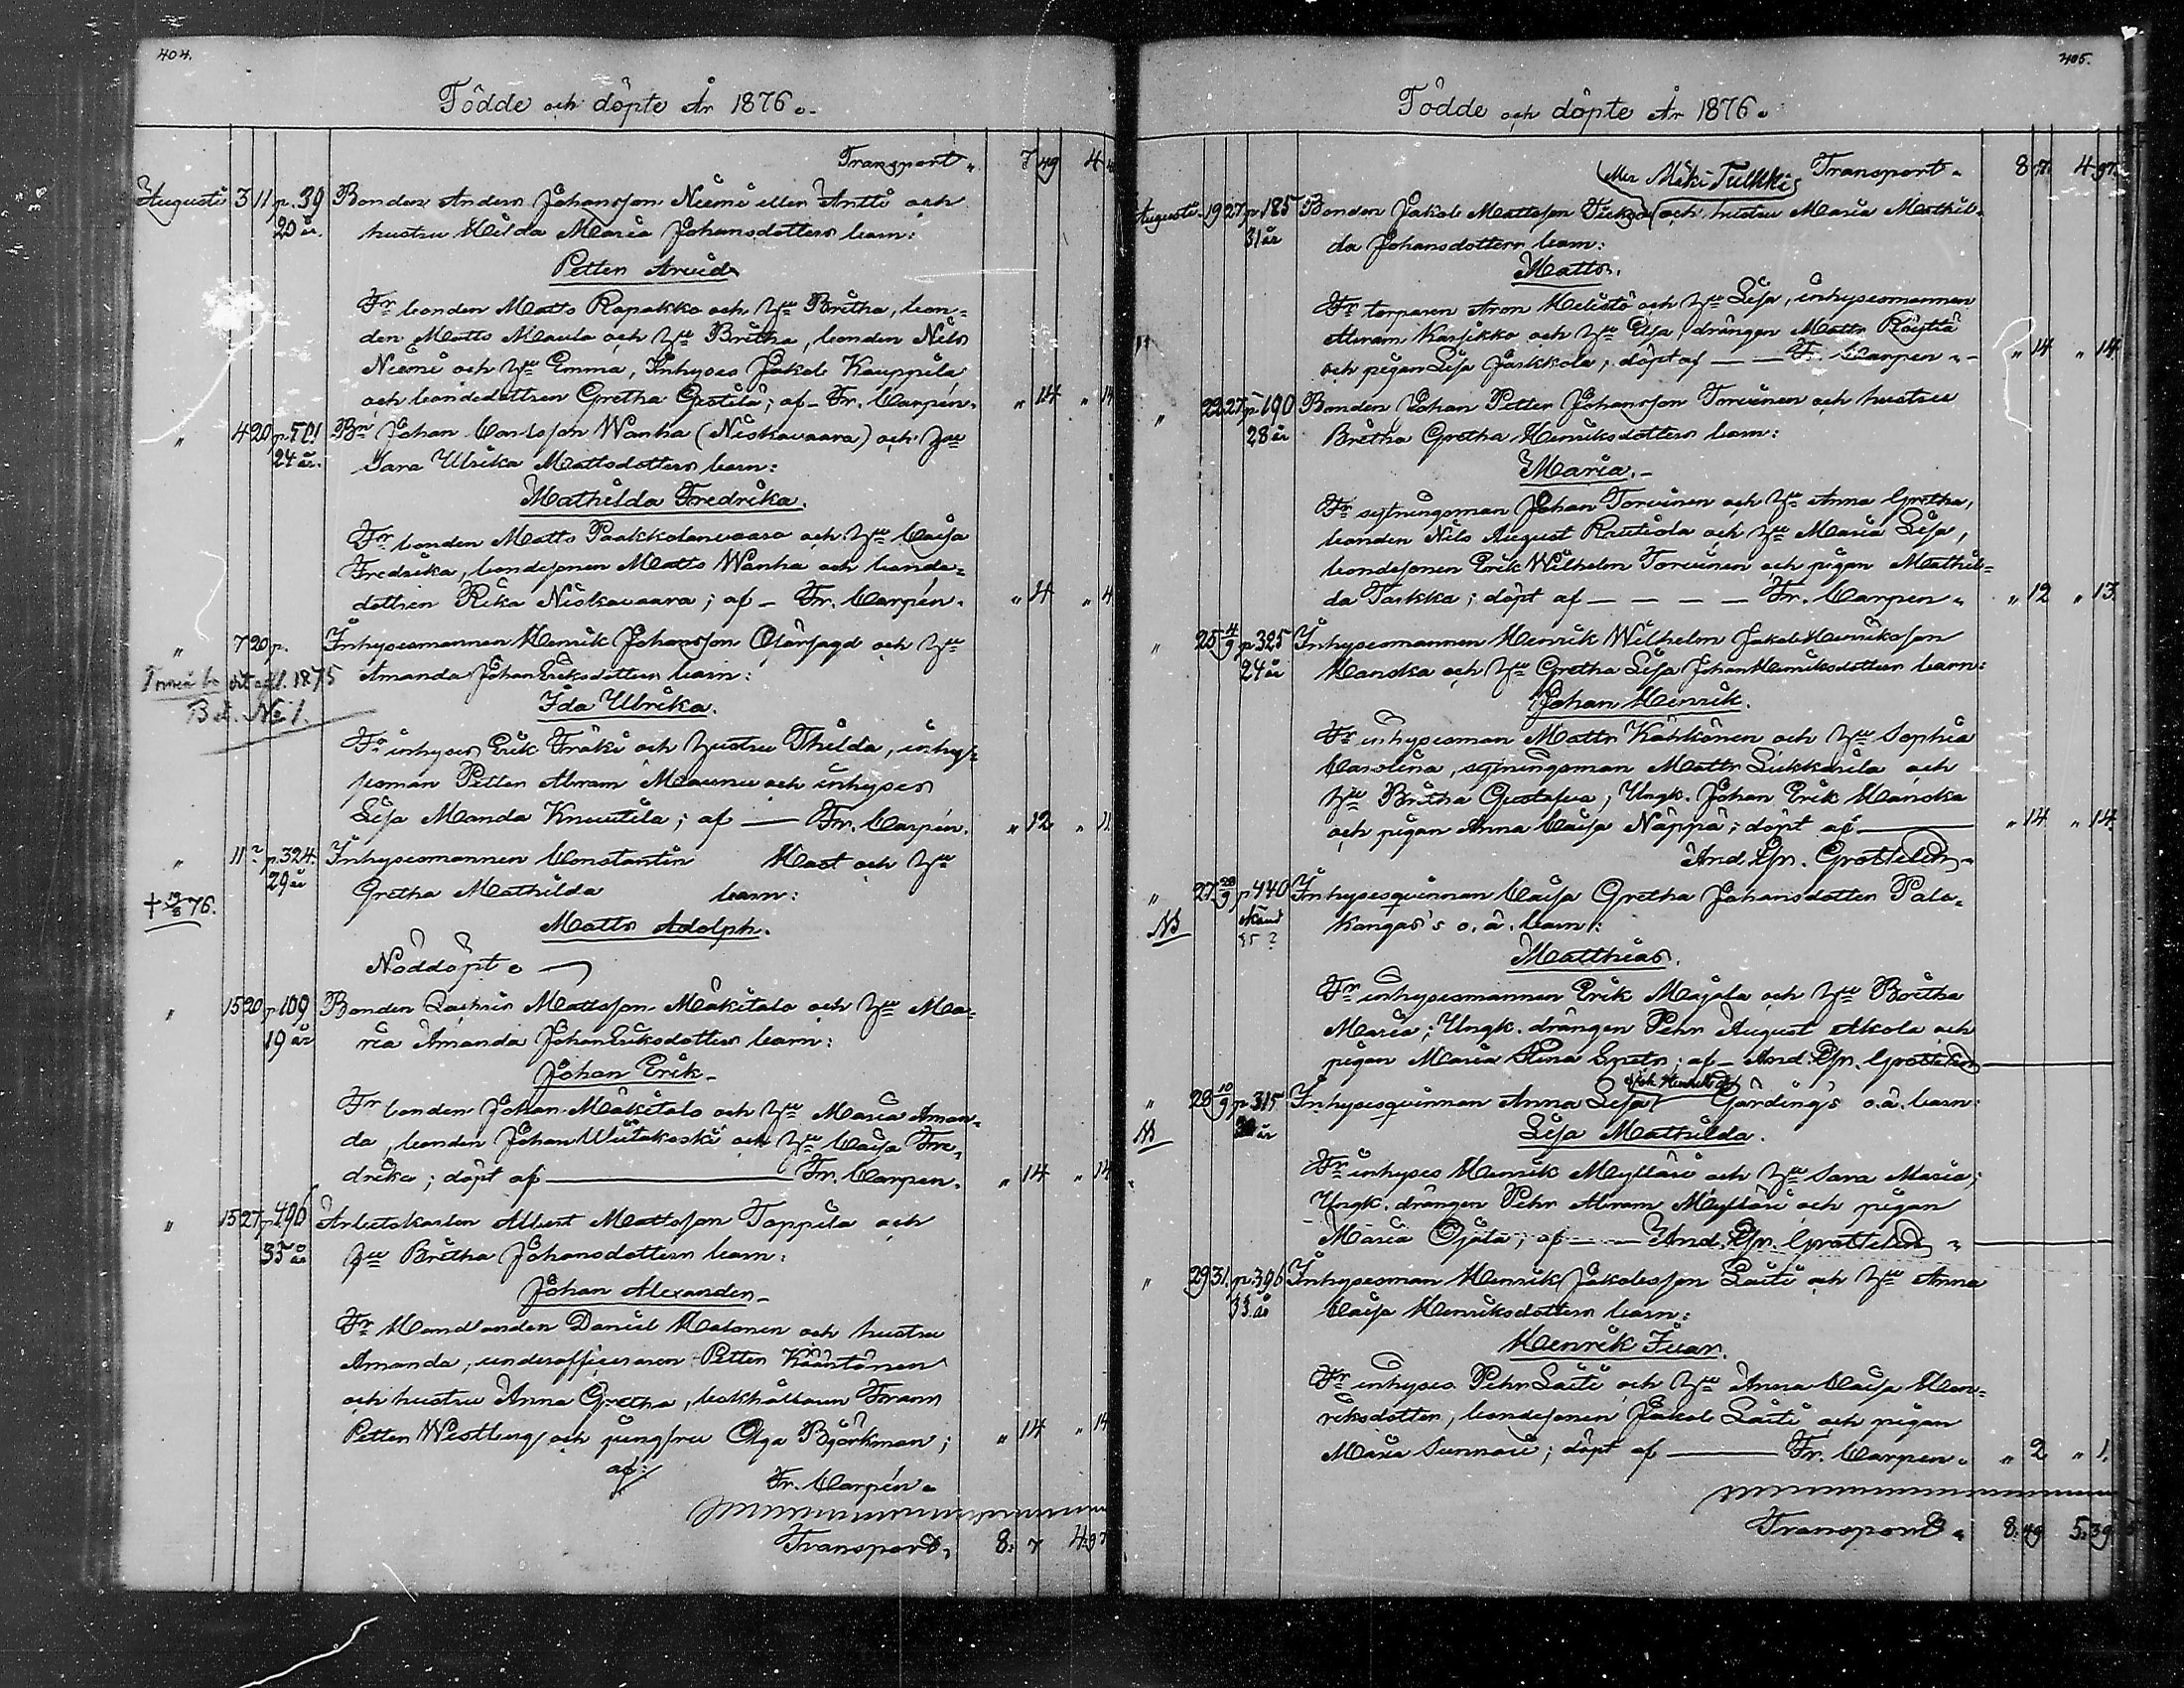 404.
Födde och döpte År 1876.
Transport. 7 49 4
Augusti 3 11 p. 39 Bonden Anders Johansson Niemi eller Antti och
20 år. hustru Hilda Maria Johansdotters barn:
Petter Arvid
Fr bonden Matts Rapakko och hu Britha, bon-
den Matts Maula och hu Britha, bonden Nils
Niemi och hu Emma, Inhyses Jakob Kauppila
och bondedottren Gretha ; af – Fr. Carpén. " 14 " 14
" 4 20 p. 501 Bn Johan Carlsson Wanha (Niskavaara) och hu
24 år. Sara Ulrika Mattsdotters barn:
Mathilda Fredrika.
Fr bonden Matts Paakkolanvaara och hu Caisa
Fredrika, bondesonen Matts Wanha och bonde-
dottren Rika Niskavaara; af – Fr. Carpén. " 4 " 4
" 7 20 p. Inhysesmannen Henrik Johansson Olärsagd och hu
1875 Amanda JohanEriksdotters barn:
Bil. No 1. Ida Ulrika.
Fr inhyses Erik Träki och hustru Thilda, inhys-
sesman Petter Abram och inhyses
Lisa Manda Knuutila; af — Fr. Carpén. " 12 " 11
" 11 ? p. 324. Inhysesmannen Constantin Hast och hu
29 år Gretha Mathilda barn:
† 19/8 76. Matts Adolph.
Nöddöpt.
" 15 20 p. 109 Bonden Zachris Mattsson Mäkitalo och hu Ma-
19 år ria Amanda JohanEriksdotters barn:
Johan Erik –
Fr bonden Johan Mäkitalo och hu Maria Aman-
da, bonden Johan Wiitakoski och hu Caisa Fre-
drika; döpt af — Fr. Carpen. " 14 " 14
" 15 27 p. 496 Arbetskarlen Albert Mattsson Toppila och
35 år hu Britha Johansdotters barn:
Johan Alexander –
Fr Handlanden Daniel Halonen och hustru
Amanda, underofficeraren Petter Kääntönen
och hustru Anna Gretha, bokhållaren Frans
Petter Westberg och jungfru Olga Björkman; " 14 " 14
af: Fr. Carpén.
Transport. 8: 7 4:97
405.
Födde och döpte År 1876.
Mäki Tulkki Transport. 8 7. 4 97.
Augusti 19 27 p. 185 Bonden Jakob Mattsson och hustru Maria Mathil-
31 år da Johansdotters barn:
Matts.
Fr torparen Aron Helistö och hu Lisa, inhysesmannen
Abram Karsikko och hu Elsa, drängen Matts Röyttä
och pigan Lisa Jaakkola, döpt af — Fr. Carpen. – " 14 " 14
" 22 27 p. 190 Bonden Johan Petter Johansson Torvinen och hustru
28 år Britha Gretha Henriksdotters barn:
Maria. –
Fr sytningsman Johan Torvinen och hu Anna Gretha,
bonden Nils August Rautiola och hu Maria Lisa,
bondesonen Erik Wilhelm Torvinen och pigan Mathil-
da Parkka; döpt af — — — — Fr. Carpen. " 12 " 13.
" 25 4/9 p. 325 Inhysesmannen Henrik Wilhelm JakobHenriksson
24 år Hanska och hu Gretha Lisa JohanHenriksdotters barn:
Johan Henrik.
Fr inhysesman Matts Kähkönen och hu Sophia
Carolina, sytningsman Matts Liikkarila och
hu Britha Gustafva; Ungk. Johan Erik Hanska
och pigan Anna Caisa Näppä; döpt af — " 14 " 14.
And. Lvr. Grotelin
" 27 28/9 p. 440 Inhysesqvinnan Caisa Gretha Johansdotter Palo-
NB 35 ? kangas's o.ä. barn:
Matthias.
Fr inhysesmannen Erik Majala och hu Britha
Maria; Ungk. drängen Pehr August Alkola och
pigan Maria Stina ; af – And. Lvr. Grotelin
" 28 10/9 p. 315 Inhysesqvinnan Anna Lisa Joh. Henriksd. Gärding's o.ä. barn:
NB 30 år Lisa Mathilda.
Fr inhyses Henrik Mylläri och hu Sara Maria;
Ungk. drängen Pehr Abram Mylläri och pigan
Maria Ojala; af — And. Lvr. Grotelin
" 29 31. p. 396 Inhysesman Henrik Jakobsson Laiti och hu Anna
33 år Caisa Henriksdotters barn:
Henrik Ivar.
Fr inhyses Pehr Laiti och hu Anna Caisa Hen-
riksdotter, bondesonen Jakob Laiti och pigan
Maria Sunnari; döpt af — Fr. Carpen. " 2 " 1.
Transport. 8: 49 5:39